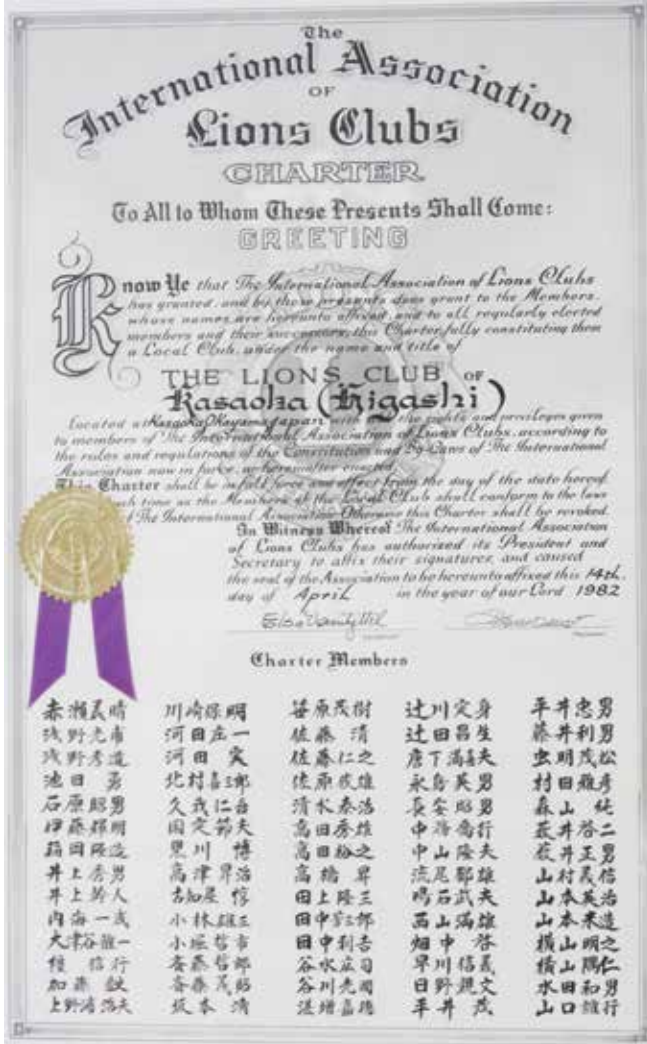 The
International Association
OF
Lions Clubs
CHARTER
To All to Whom These Presents Shall Come:
GREETING
Know Ye that The International Association of Lions Clubs
has granted, and by these presents does grant to the Members,
whose names are hereunto affixed, and to all regularly elected
members and their successors, this Charter, fully constituting them
a Local Club, under the name and title of
THE LIONS CLUB OF
Kasaoka (Higashi)
Located at Kasaoka, Okayama, Japan with the rights and privileges given
to members of The International Association of Lions Clubs, according to
the rules and regulations of the Constitution and By-Laws of The International
Association now in force, or hereinafter enacted.
This Charter shall be in full force and effect from the day of the date hereof
such time as the Members of the Local Club shall conform to the laws
of The International Association. Otherwise this Charter shall be revoked.
In Witness Whereof The International Association
of Lions Clubs has authorized its President and
Secretary to affix their signatures, and caused
the seal of the Association to be hereunto affixed this 14th
day of April in the year of our Lord 1982
Charter Members
川崎保明 笹原茂樹 辻川定身 平井忠男
河田庄一 佐藤清 辻田昌生 藤井利男
浅野孝造 河田実 佐藤仁之 唐下満喜夫 虫明茂松
池田勇 北村喜三郎 永島英男 村田雅彦
石原昭男 清水泰浩 長安昭男 森山純
伊藤輝明 国定節夫 高田秀雄
黒川博 高田裕之 中山隆夫
井上秀男 高津昇治 高橋昇 山村義信
井上幹人 田上隆三 鳴石武夫 山本英治
小林雄三 西山満雄
小堀哲市 田中利吉 畑中啓 横山明之
斎藤哲郎 早川信義
斎藤茂昭 谷川光国 日野親文 水田和男
坂本清 平井茂 山口雄行